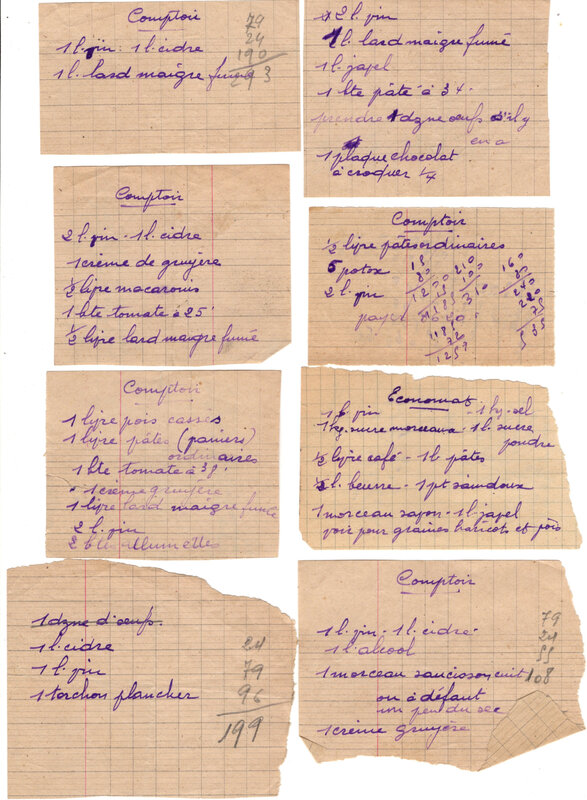 Comptoir
1 l. vin : 1 l. cidre
1 l. lard maigre fumé
79
24
190
293
2 l. vin
1 l. lard maigre fumé
1 l. javel
1 bte pâté à 34.
prendre 1 dzne œufs s'il y
en a
1 plaque chocolat
à croquer 1/4
Comptoir
2 l. vin - 1 l. cidre
1 crème de gruyère
1/2 livre macaronis
1 bte tomate à 25
1/2 livre lard maigre fumé
Comptoir
1/2 livre pâtes ordinaires
5 potox
2 l. vin
payer
Comptoir
1 livre pois cassés
1 livre pâtes (paniers)
ordinaires
1 bte tomate à 39
1 crème gruyère
1 livre lard maigre fumé
2 l. vin
2 btes allumettes
Economat
1 l. vin - 1 kg. sel
1 kg. sucre morceaux - 1 l. sucre
poudre
1/2 livre café - 1 l. pâtes
1/2 l. beurre - 1 pt saindoux
1 morceau savon - 1 l. javel
voir pour graines haricots et pois
1 dzne d'œufs
1 l. cidre
1 l. vin
1 torchon plancher
24
79
96
199
Comptoir
1 l. vin - 1 l. cidre -
1 l. alcool
1 morceau saucisson cuit
ou à défaut
un peu du sec
1 crème gruyère
79
24
55
108